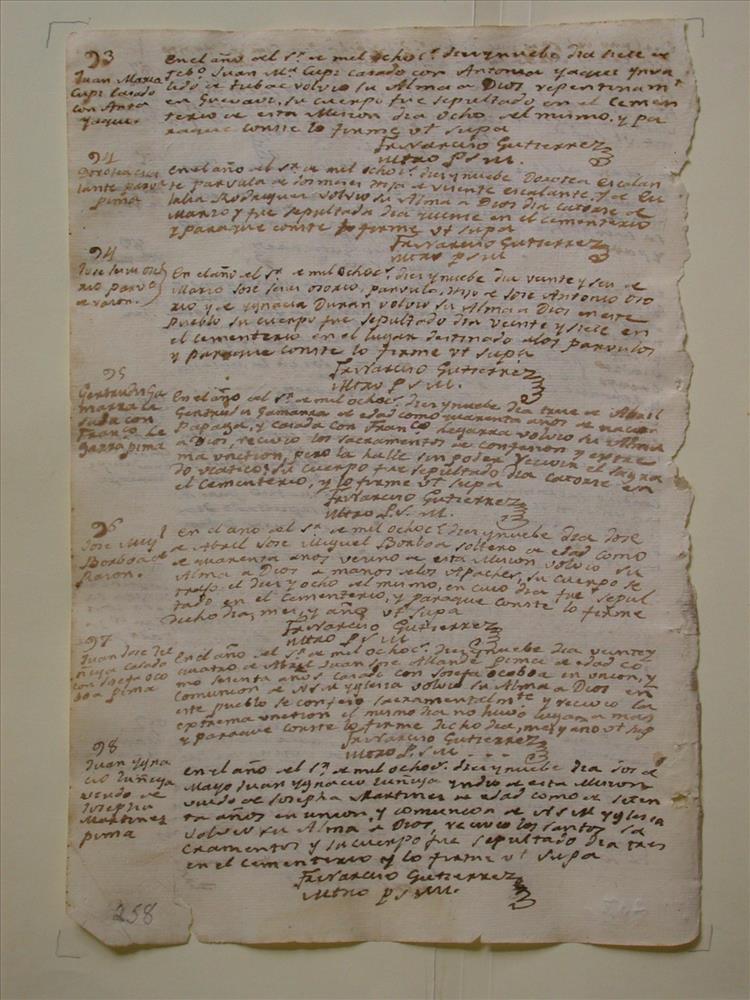 93
Juan Maria
Cupi casado
con Anta
Yaque.
En el año del Sr. de mil ochoc.s diez y nuebe dia siete de
Feb.o Juan M.a Cupi casado con Antonia Yaque Ynva
lido de Tubac volvio su Alma a Dios repentinam.te
en Guevavi, su cuerpo fue sepultado en el Cemen
terio de esta Mision dia ocho del mismo, y pa
raque conste lo firme vt supa
Fr Narciso Gutierrez
Mtro P S M.
94
Dorotea esca
lante parvu
pima
en el año del Sr. de mil ochoc.s diez y nuebe Dorotea Escalan
te parvula de dos meses hija de Vicente escalante, y de Eu
lalia Rodriguez volvio su Alma a Dios dia catorse de
Marzo y fue sepultada dia quinse en el cementerio
y paraque conste lo firme vt supa
Fr Narciso Gutierrez
Mtro P S M
94
Jose Osso
rio parvo
de razon.
En el año del Sr. de mil ochoc.s diez y nuebe dia veinte y seis de
Marzo Jose Osorio, parvulo, hijo de Jose Antonio Oso
rio y de Ygnacia Duran volvio su Alma a Dios en este
Pueblo su cuerpo fue sepultado dia veinte y siete en
el cementerio en el lugar destinado alos parvulos
y paraque conste lo firme vt supa
Fr Narciso Gutierrez
Mtro P S M.
95
Gertrudis Ga
marra ca
sada con
Fran.co Le
garra pima
En el año del Sr. de mil ochoc.s diez y nuebe dia trese de Abril
Gertrudis Gamarra de edad como quarenta años de nacion
Papaga, y casada con Fran.co Legarra volvio su Alma
a Dios, recivio los sacramentos de confesion y extre
ma vncion, pero la halle sin poder recivir el sagra
do viatico; su cuerpo fue sepultado dia catorse en
el cementerio, y lo firme vt supa
Fr Narciso Gutierrez
Mtro P. S. M.
96
Jose Mig.l
Borboa de
Razon.
en el año del Sr. de mil ochoc.s diez y nuebe dia dose
de Abril Jose Miguel Borboa soltero de edad como
de quarenta años vecino de esta Mision volvio su
Alma a Dios a manos delos Apaches, su cuerpo se
trajo el diez y ocho del mismo, en cuio dia fue sepul
tado en el Cementerio, y paraque conste lo firme
dicho dia, mes, y año vt supa
Fr Narciso Gutierrez
Mtro P S M
97
Juan Jose
casado
con Josefa Oco
boa pima
En el año del Sr. de mil ochoc.s diez y nuebe dia veinte y
quatro de Abril Juan Jose Allande pima de edad co
mo setenta años casado con Josefa Ocoboa en vnion, y
Comunion de N S M Yglesia volvio su Alma a Dios en
este pueblo se confeso sacramentalm.te y recivio la
extrema vncion el mismo dia no huvo lugar a mas
y paraque conste lo firme dicho dia, mes, y año vt sup
Fr Narciso Gutierrez
Mtro P. S. M.
98
Juan Ygna
cio Zuñiga
viudo de
Josepha
Martinez
pima
en el año del Sr. de mil ochoc.s diez y nuebe dia dos de
Mayo Juan Ygnacio Zuñiga yndio de esta Mision
viudo de Josepha Martinez de edad como de seten
ta años en union, y comunion de N S M Yglesia
volvio su Alma a Dios, recivio los santos sa
cramentos y su cuerpo fue sepultado dia tres
en el cementerio y lo firme vt supa
Fr Narciso Gutierrez
Mtro P S M.
258